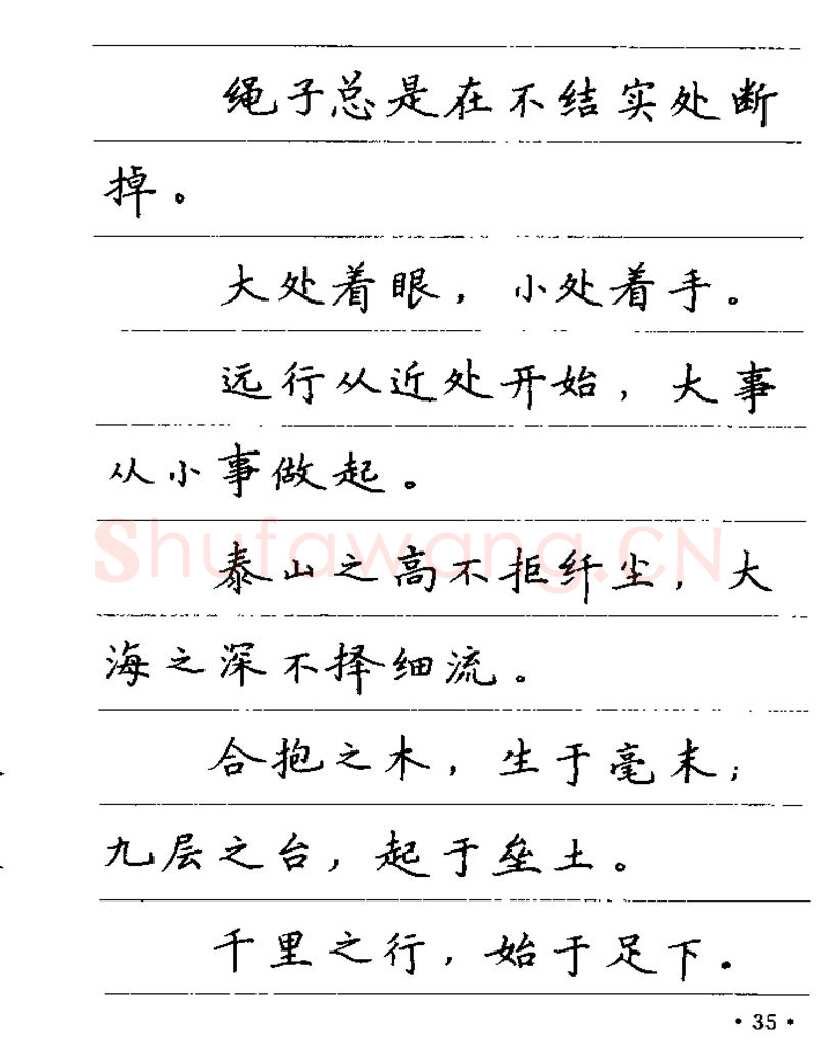 绳子总是在不结实处断
掉。
大处着眼，小处着手。
远行从近处开始，大事
从小事做起。
泰山之高不拒纤尘，大
海之深不择细流。
合抱之木，生于毫末；
九层之台，起于垒土。
千里之行，始于足下.
Shufawang.CN
·35·